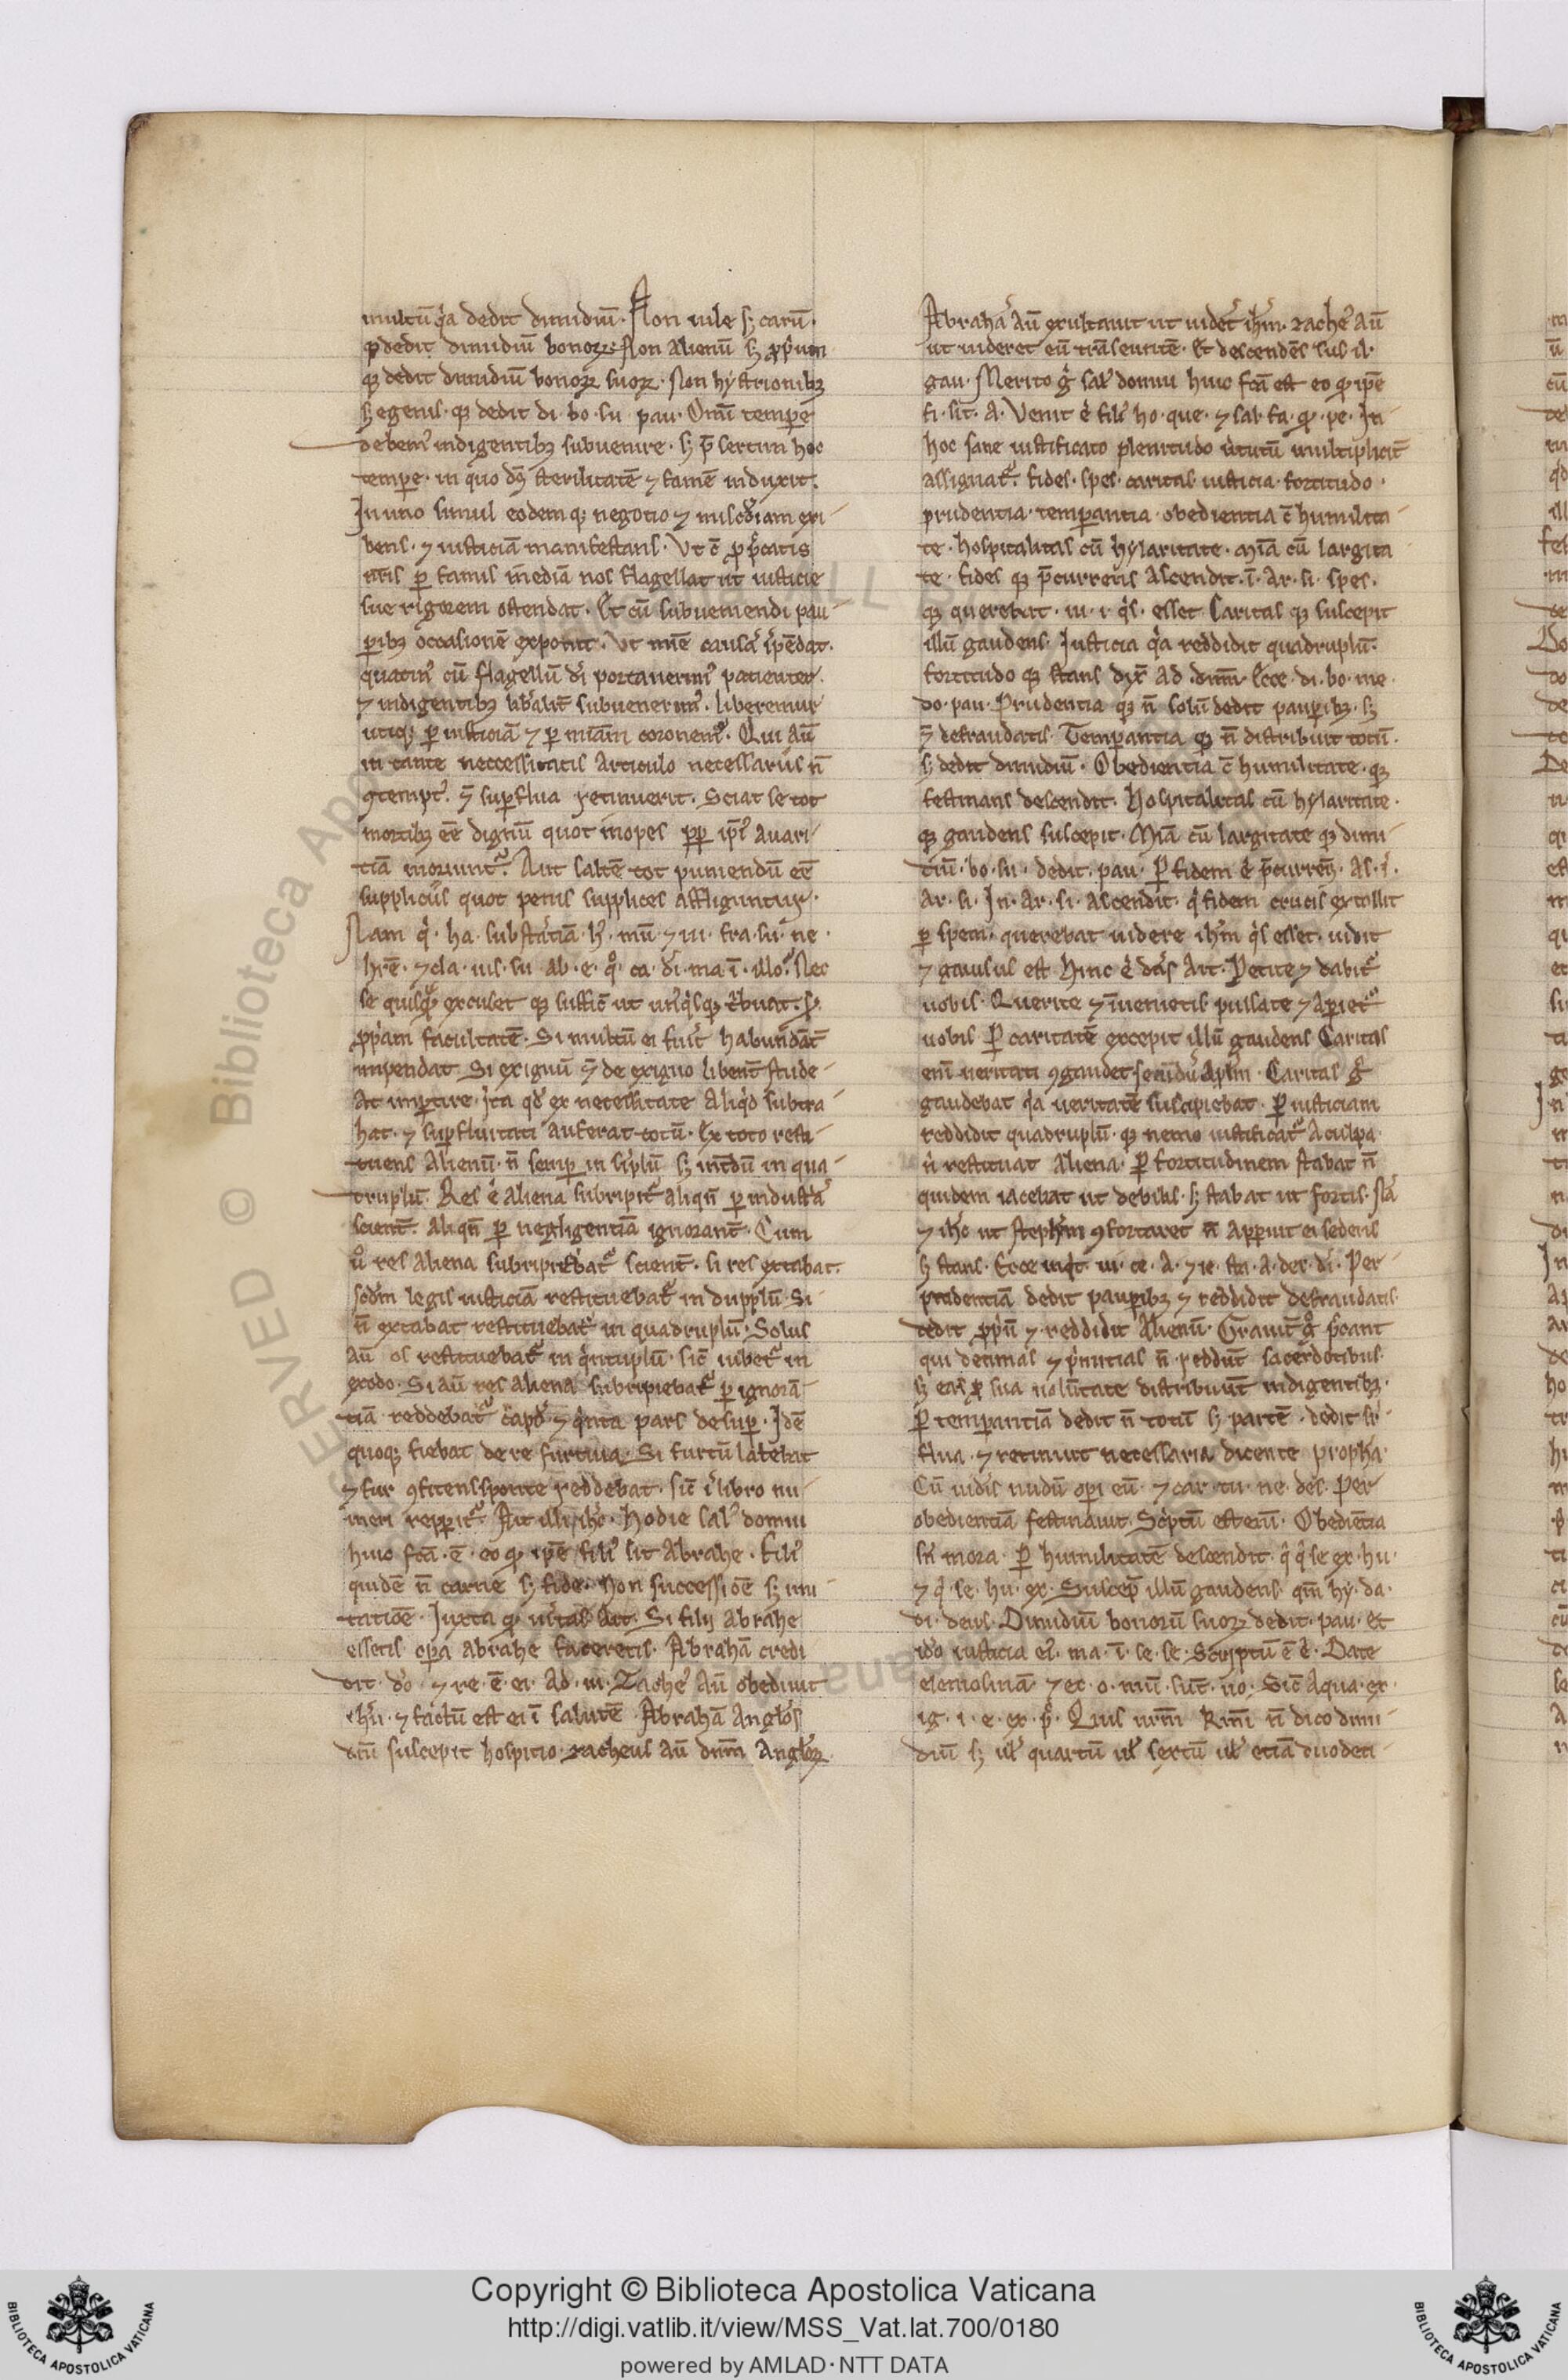 multū q̉a dedit dimidiū. Non uile sꝫ carū.
qꝫ dedit dimidiū bonoꝝ. Non alienū sꝫ ꝓp̉um
qꝫ dedit dimidiū bonoꝝ suoꝝ. Non hystrionibꝫ
sꝫ egenis. qꝫ dedit di. bo. su. pau. Omī tempe
debem᾿ indigentibꝫ subuenire. sꝫ p̄sertim hoc
tempe. in quo dn̄s sterilitatē ⁊ famē induxit.
In uno simul eodemqꝫ negotio ⁊ misc̄diam exi-
bens. ⁊ iusticiā manifestans. Ut c̄ ꝓ pc̄catis
nr̄is ꝑ famis īnediā nos flagellat ut iusticie
sue rigorem ostendat. Et cū subueniendi pau-
ꝑibꝫ occasionē exponit. Ut mīe causā ip̄ēdat.
quatin᾿ cū flagellū dī portauerim᾿ patienter.
⁊ indigentibꝫ lib̄alit̄ subuenerim᾿. liberemur
utiqꝫ ꝑ iusticiā ⁊ ꝑ mīam coronem̉. Qui aū
in tante neccessitatis articulo necessariis n̄
ꝯtempt᾿. ⁊ suꝑflua retinuerit. Sciat se tot
mortibꝫ eē dignū quot inopes ꝓꝑ ip̄i᾿ auari-
tiā moriunt̉. Aut saltē tot puniendū eē
suppliciis quot penis supplices affliguntur.
Nam q̉. ha. substātiā. h᾿. mū. ⁊ ui. fra. su. ne.
hrē. ⁊ cla. uis. su. ab. e. qͦ. ca. dī. ma. ī. illo. Nec
se quisq̄ excuset qꝫ suffic̄ ut un᾿q̉sqꝫ t̉buat. s.
ꝓp̉am facultatē. Si multū ei fuīt habundāt̄
impendat. Si exiguū ⁊ de exiguo libent̄ stude-
at imꝑtire. Ita qd̄ ex necessitate aliq̉d subtra-
hat. ⁊ suꝑfluitati auferat totū. Ex toto resti-
tuens alienū. n̄ semꝑ in siplū sꝫ int̄dū in qua-
druplū. Res .e. aliena subripit̉ aliqn̄ ꝑ industā
scient̄. aliqn̄ ꝑ negligentiā ignorant̄. Cum
uͦ res aliena subripiebat̉ scient̄. si res extabat.
scd̄m legis iusticiā restituebat̉ in dupplū. Si
n̄ extabat restituebat̉ in quadruplū. Solus
aū os restituebat̉ in q̉ntuplū. sic̄ iubet̉ in
exodo. Si aū res aliena subripiebat̉ ꝑ ignorā-
tiā reddebat̉ capd᾿ ⁊ q̉nta pars desuꝑ. Idē
quoqꝫ fiebat de re furtiua. Si furtū latebat
⁊ fur ꝯfitens sponte reddebat. sic̄ ī libro nu-
meri reꝑꝑit̉. Ait illi ihc̄. Hodie sal᾿ domui
huic fcā. ē. eo qꝫ ipē fili᾿ sit Abrahe. fili᾿
quidē n̄ carne sꝫ fide. Non successiōe sꝫ imi-
tatiōe. Iuxta qꝫ uītas ait. Si filij abrahe
essetis oꝑa abrahe faceretis. Abrahā credi-
dit. dō. ⁊ re. ē. ei. ad. iu. Zache᾿ aū obediuit
ihū. ⁊ factū est ei ī salutē. Abrahā anglos
dnī suscepit hospitio. zacheus aū dnm̄ angloꝝ.
Abrahā aū exultauit ut uidēt ihm̄. zache᾿ aū
ut uideret eū trāseuntē. Et descendēs sus. il.
gau. Merito g̉ sal᾿ domui huic fcā est eo qꝫ ipē
fi. sit. a. Venit .e. fili᾿ ho. que. ⁊ sal. fa. qꝫ. pe. In
hoc sane iustificato plenitudo ūtutū multiplicit̄
assignat̉. fides. spes. caritas. iusticia. fortitudo.
prudentia. temꝑantia. obedientia c̄ humilita-
te. hospitalitas cū hylaritate. mīa cū largita-
te. fides qꝫ p̄currens ascendit. ī. ar. si. spes.
qꝫ querebat. ui. i. q̉s. esset. Caritas qꝫ suscepit
illū gaudens. Iusticia q̉a reddidit quadruplū.
fortitudo qꝫ stans dix̄ ad dnm̄. Ecce. di. bo. me.
do. pau. Prudentia qꝫ n̄ solū dedit pauꝑibꝫ. sꝫ
⁊ defraudatis. Temꝑantia qꝫ n̄ distribuit totū.
sꝫ dedit dimidiū. Obedientia c̄ humilitate. qꝫ
festinans descendit. Hospitalitas cū hylaritate.
qꝫ gaudens suscepit. Mīa cū largitate qꝫ dimi-
diū. bo. su. dedit. pau. ꝑ fidem .e. p̄curren̄. as. ī.
ar. si. In. ar. si. ascendit. q̉ fidem crucis extollit
ꝑ spem. querebat uidere ihm̄ q̉s esset. uidit
⁊ gauisus est. Hinc .e. dn̄s ait. Petite ⁊ dabit̉
uobis. Querite ⁊ īuenietis. pulsate ⁊ aꝑiet̉
uobis. ꝑ caritatē excepit illū gaudens. Caritas
enī ueritati ꝯgaudet secundū aplm̄. Caritas g̉
gaudebat q̉a ueritatē suscipiebat. ꝑ iusticiam
reddidit quadruplū. qꝫ nemo iustificat̉ a culpa
n̉ restituat aliena. ꝑ fortitudinem stabat n̄
quidem iacebat ut debilis. sꝫ stabat ut fortis. Nā
⁊ ihc̄ ut stephm̄ ꝯfortaret n̄ apparuit ei sedens
sꝫ stans. Ecce inq̉t. ui. ce. a. ⁊ ie. sta. a. dex. dī. Per
prudentiā dedit pauꝑibꝫ ⁊ reddidit defraudatis.
dedit ꝓp̉ū ⁊ reddidit alienū. Grauit̄ g̉ pc̄cant
qui decimas ⁊ p̉mitias n̄ reddūt sacerdotibus.
sꝫ eas ꝓ sua uolūtate distribuūt indigentibꝫ.
ꝑ temꝑantiā dedit n̄ totū sꝫ partē. dedit suꝑ-
flua. ⁊ retinuit necessaria dicente propha.
Cū uidīs nudū opi eū. ⁊ car. tu. ne. des. Per
obedientiā festinauit. Scriptū est enī. Obediētia
sn̄ mora. ꝑ humilitatē descendit. q̉ q̉ se ex. hu.
⁊ q̉. se. hu. ex. Suscep̄ illū gaudens. qm̄ hy. da.
di. deus. Dimidiū bonorū suoꝝ dedit. pau. Et
id̄o iusticia ei᾿. ma. ī. se. se. Scriptū ē .e. Date
elemosinā. ⁊ ec. o. mū. sūt. uo. Sic̄ aqua. ex.
ig. i. e. ex. p̄. Quis urm̄ kmī n̄ dico dimi-
diū sꝫ ul᾿ quartū ul᾿ sextū ul᾿ etiā duodeci-
Copyright © Biblioteca Apostolica Vaticana
http://digi.vatlib.it/view/MSS_Vat.lat.700/0180
powered by AMLAD · NTT DATA